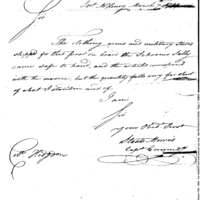 Sir
Fort McHenry March
The Clothing arms and military Stores
shipped for that post on board the Schooner Sally
came safe to hand, and the articles compared
with the invoice, but the quantity falls very far short
of what I stand in need of
I am
Sir
your Obt Servt
Staats Morris
Capt Commdt